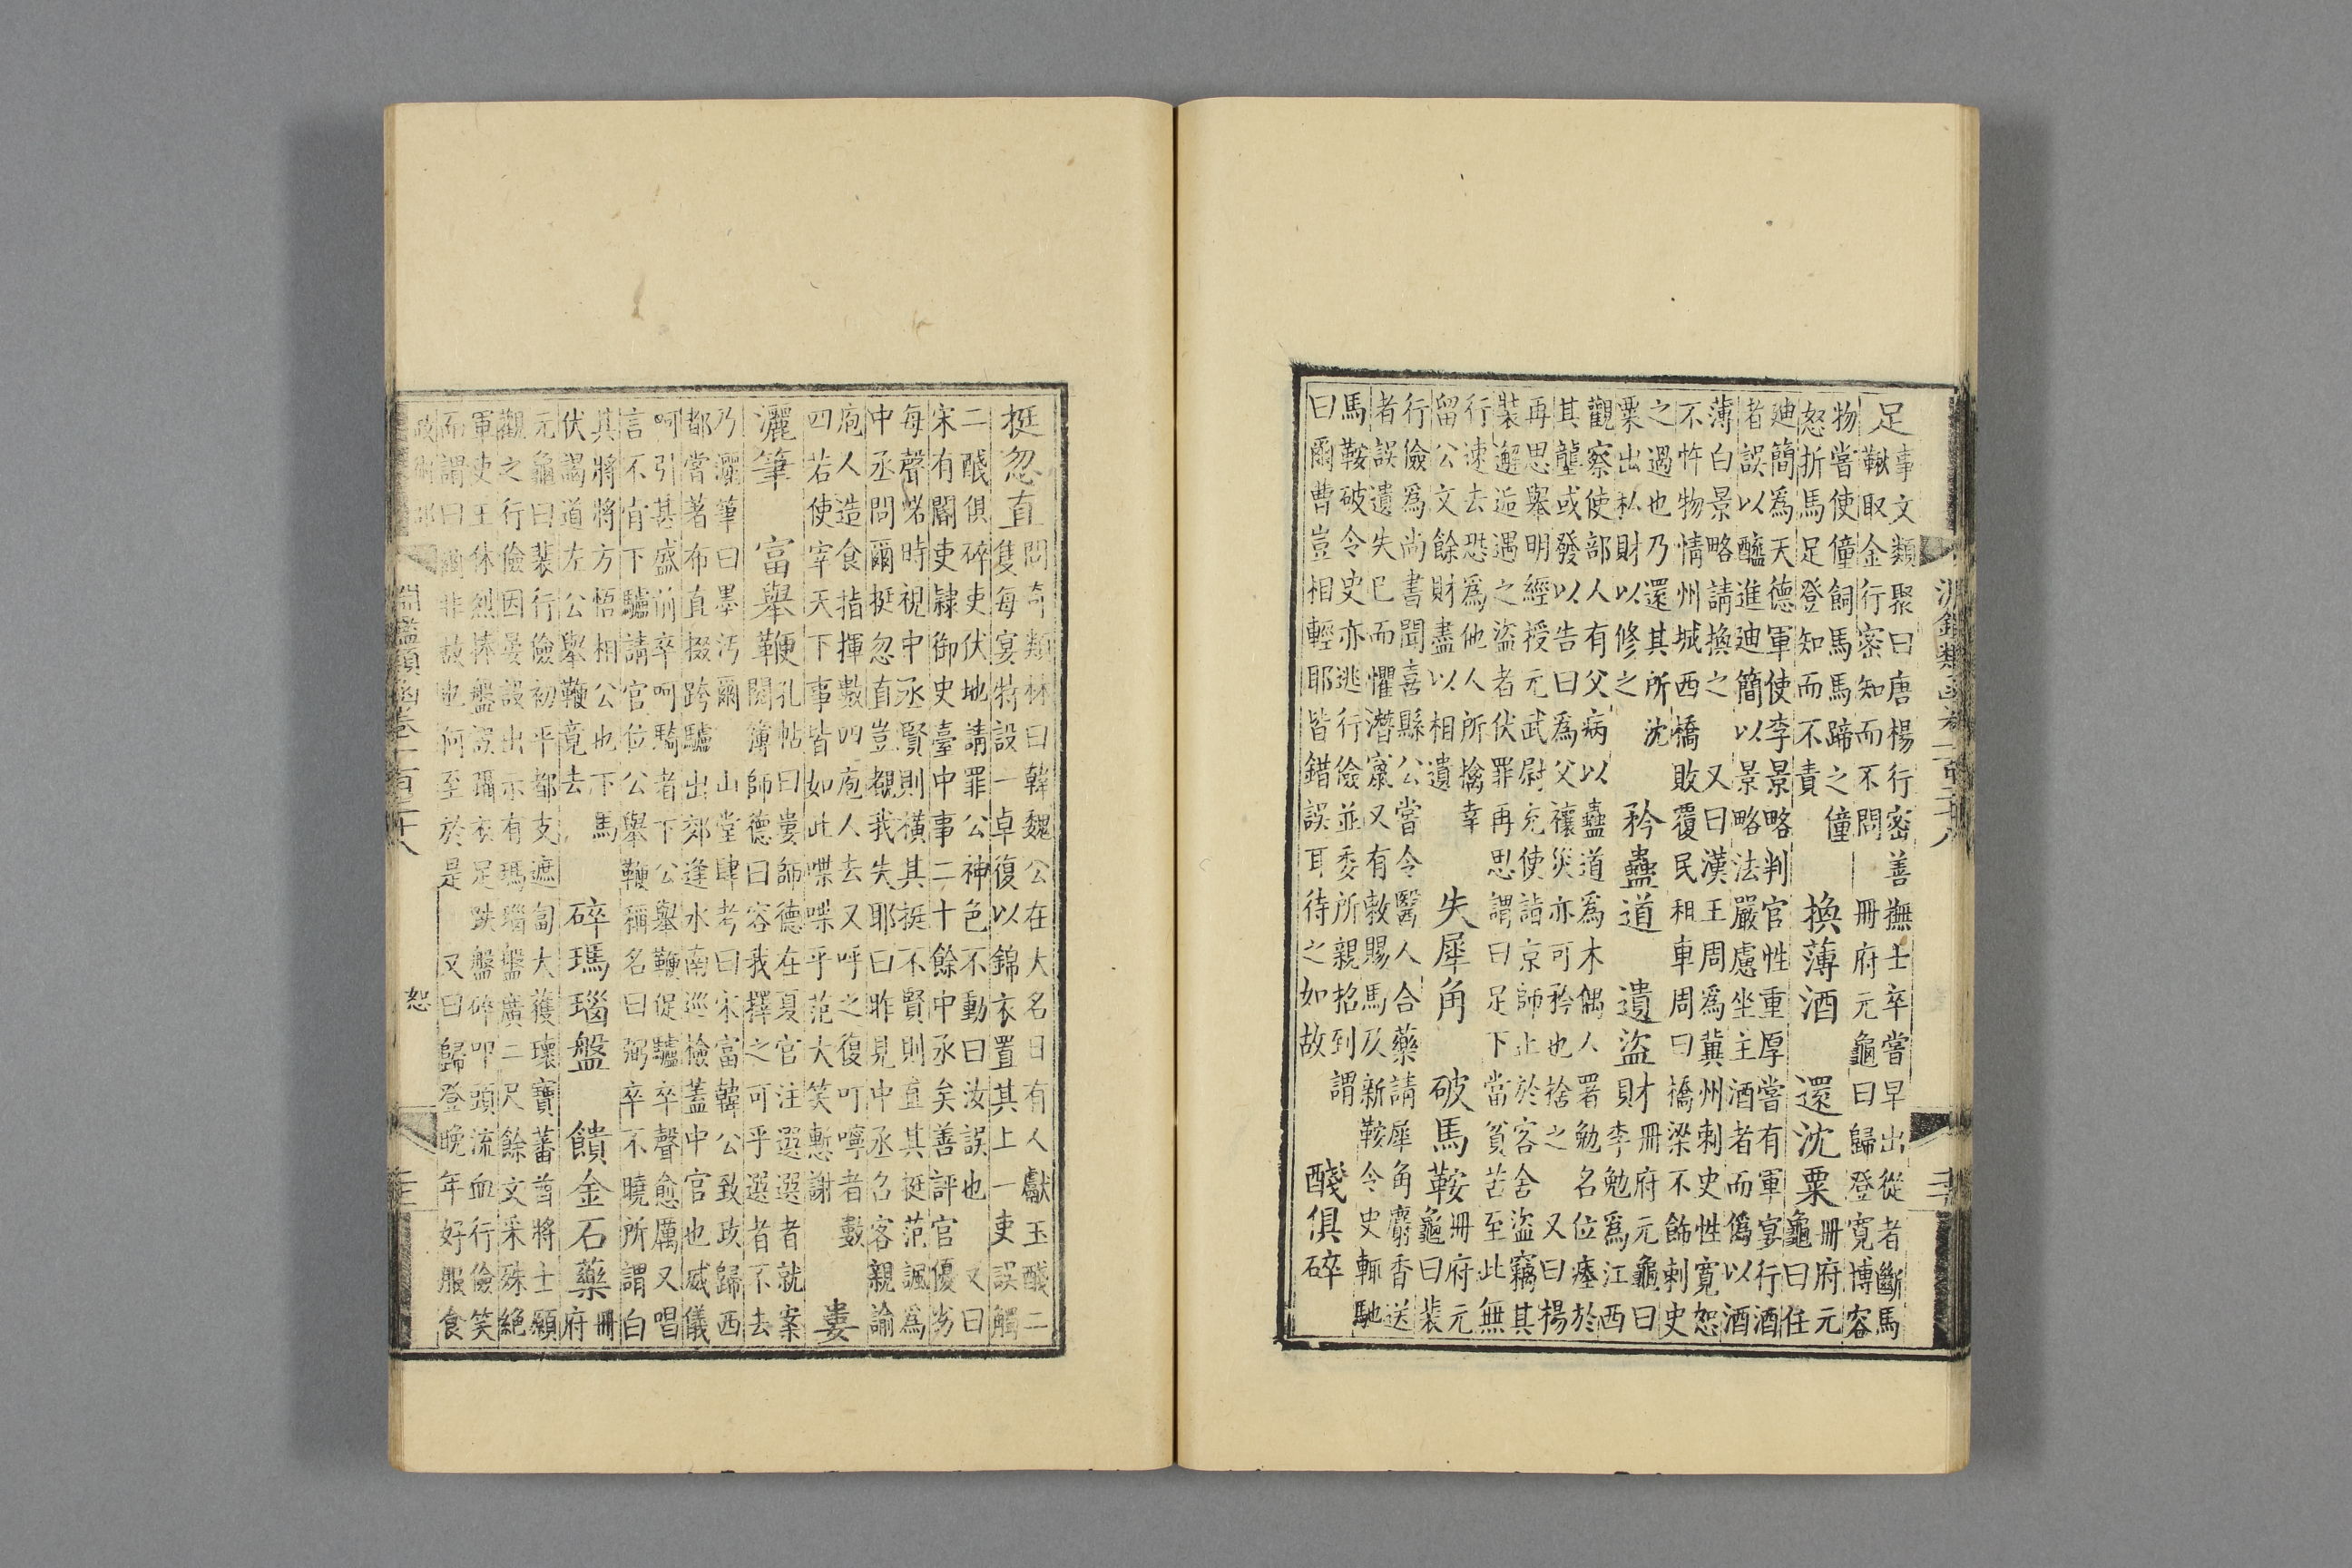 淵鑑類函
足 事文類聚曰唐楊行密善撫士卒嘗早出從者斷馬
鞦取金行密知而不問 冊府元龜曰歸登寬博容
物嘗使僮飼馬馬蹄之僮
怒折馬足登知而不責 換薄酒 還沈粟 冊府元
龜曰任
迪簡為天德軍使李景略判官性重厚嘗有軍宴行酒
者誤以醯進迪簡以景略法嚴慮坐主酒者而偽以酒
薄白景略請換之 又曰漢王周為冀州刺史性寬恕
不忤物情州城西橋敗覆民租車周曰橋梁不飾刺史
之過也乃還其所沈
粟出私財以修之 矜蠱道 遺盜財 冊府元龜曰
李勉為江西
觀察使部人有父病以蠱道為木偶人署勉名位瘞於
其壟或發以告曰為父禳災亦可矜也捨之 又曰楊
再思舉明經授元武尉充使詣京師止於客舍盜竊其
裝邂逅遇之盜者伏罪再思謂曰足下當貧苦至此無
行速去恐為他人所擒幸
留公文餘財盡以相遺 失犀角 破馬鞍 冊府元
龜曰裴
行儉為尚書聞喜縣公嘗令醫人合藥請犀角麝香送
者誤遺失已而懼潛竄又有敕賜馬及新鞍令史輒馳
馬鞍破令史亦逃行儉並委所親招到謂
曰爾曹豈相輕耶皆錯誤耳待之如故 醆俱碎
挺忽直 問奇類林曰韓魏公在大名日有人獻玉醆二
隻每宴特設一卓復以錦衣置其上一吏誤觸
二醆俱碎吏伏地請罪公神色不動曰汝誤也 又曰
宋有闕吏隸御史臺中事二十餘中丞矣善評官優劣
每聲喏時視中丞賢則橫其挺不賢則直其挺范諷為
中丞問爾挺忽直豈覩我失耶曰昨見中丞召客親諭
庖人造食指揮數四庖人去又呼之復叮嚀者數
四若使宰天下事皆如此喋喋乎范大笑慙謝 婁
灑筆 富舉鞭 孔帖曰婁師德在夏官注選選者就案
閱簿師德曰容我擇之可乎選者不去
乃灑筆曰墨汚爾 山堂肆考曰宋富韓公致政歸西
都嘗著布直掇跨驢出郊逢水南巡檢蓋中官也威儀
呵引甚盛前卒呵騎者下公舉鞭促驢卒聲愈厲又唱
言不肯下驢請官位公舉鞭稱名曰弼卒不曉所謂白
其將將方悟相公也下馬
伏謁道左公舉鞭竟去 碎瑪瑙盤 饋金石藥 冊
府
元龜曰裴行儉初平都支遮匐大獲瓌寶蕃酋將士願
觀之行儉因宴設出示有瑪瑙盤廣二尺餘文采殊絕
軍吏王休烈捧盤誤躡衣足跌盤碎叩頭流血行儉笑
而謂曰爾非故也何至於是 又曰歸登晚年好服食
淵鑑類函卷二百三十八 恕